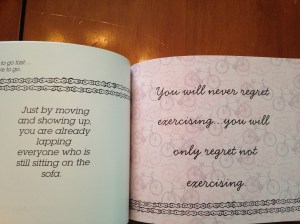 to go fast...
to go.
Just by moving
and showing up,
you are already
lapping
everyone who is
still sitting on the
sofa.
You will never regret
exercising...you will
only regret not
exercising.